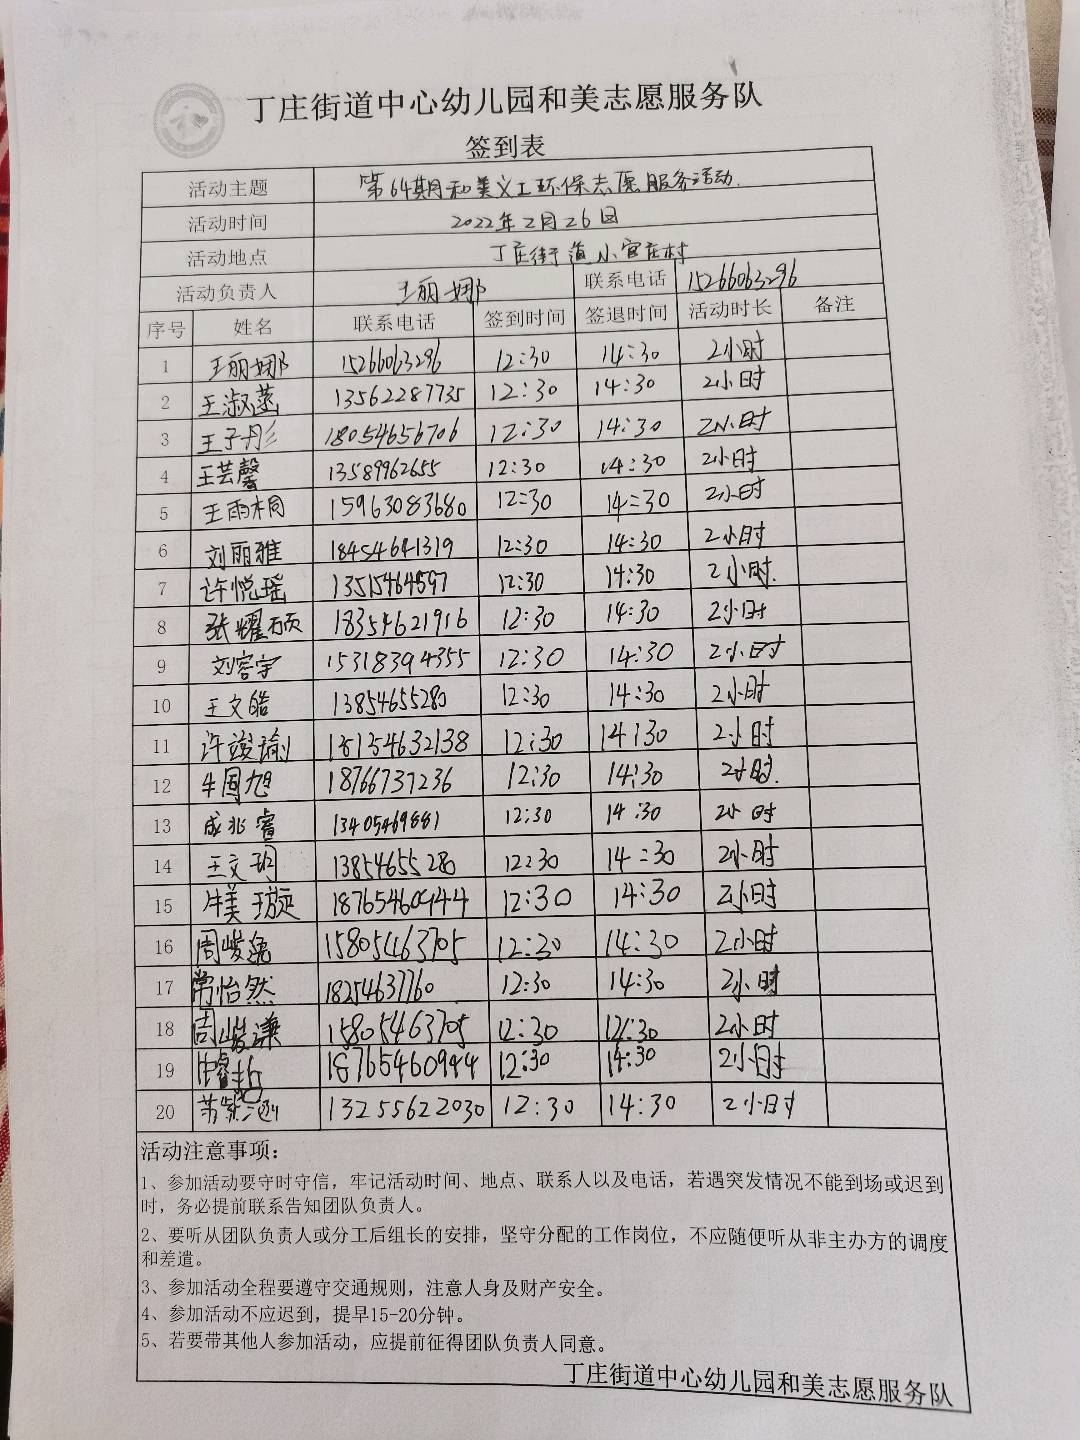 丁庄街道中心幼儿园和美志愿服务队
签到表
活动主题 第64期和美义工环保志愿服务活动.
活动时间 2022年2月26日
活动地点 丁庄街道小官庄村
活动负责人 王丽娜 联系电话 15266063296
序号 姓名 联系电话 签到时间 签退时间 活动时长 备注
1 王丽娜 15266063296 12:30 14:30 2小时
2 王淑菡 13562287735 12:30 14:30 2小时
3 王子彤 18054656706 12:30 14:30 2小时
4 王芸馨 13589962655 12:30 14:30 2小时
5 王雨桐 15963083680 12:30 14:30 2小时
6 刘丽雅 18454641319 12:30 14:30 2小时
7 许悦瑶 13515464597 12:30 14:30 2小时.
8 张耀硕 18354621916 12:30 14:30 2小时
9 刘容宇 15318394355 12:30 14:30 2小时
10 王文皓 13854655280 12:30 14:30 2小时
11 许竣瑜 18154632138 12:30 14:30 2小时
12 牛同旭 18766737236 12:30 14:30 2小时.
13 成兆睿 13405469881 12:30 14:30 2小时
14 王文玥 13854655280 12:30 14:30 2小时
15 牛美璇 18765460944 12:30 14:30 2小时
16 周峻逸 15805463705 12:30 14:30 2小时
17 常怡然 18254637760 12:30 14:30 2小时
18 周峻谦 15805463705 12:30 14:30 2小时
19 18765460944 12:30 14:30 2小时
20 13255622030 12:30 14:30 2小时
活动注意事项：
1、参加活动要守时守信，牢记活动时间、地点、联系人以及电话，若遇突发情况不能到场或迟到
时，务必提前联系告知团队负责人。
2、要听从团队负责人或分工后组长的安排，坚守分配的工作岗位，不应随便听从非主办方的调度
和差遣。
3、参加活动全程要遵守交通规则，注意人身及财产安全。
4、参加活动不应迟到，提早15-20分钟。
5、若要带其他人参加活动，应提前征得团队负责人同意。
丁庄街道中心幼儿园和美志愿服务队